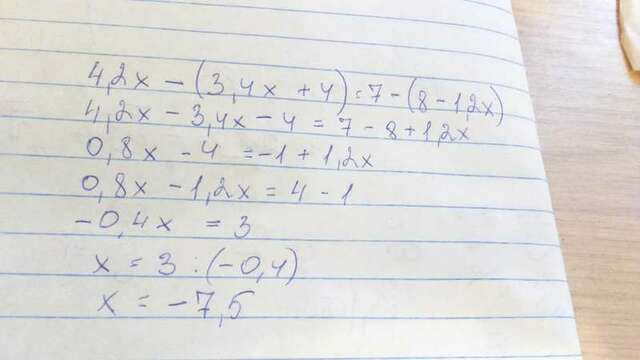 4,2x - (3,4x + 4) = 7 - (8 - 1,2x)
4,2x - 3,4x - 4 = 7 - 8 + 1,2x
0,8x - 4 = -1 + 1,2x
0,8x - 1,2x = 4 - 1
-0,4x = 3
x = 3 : (-0,4)
x = -7,5